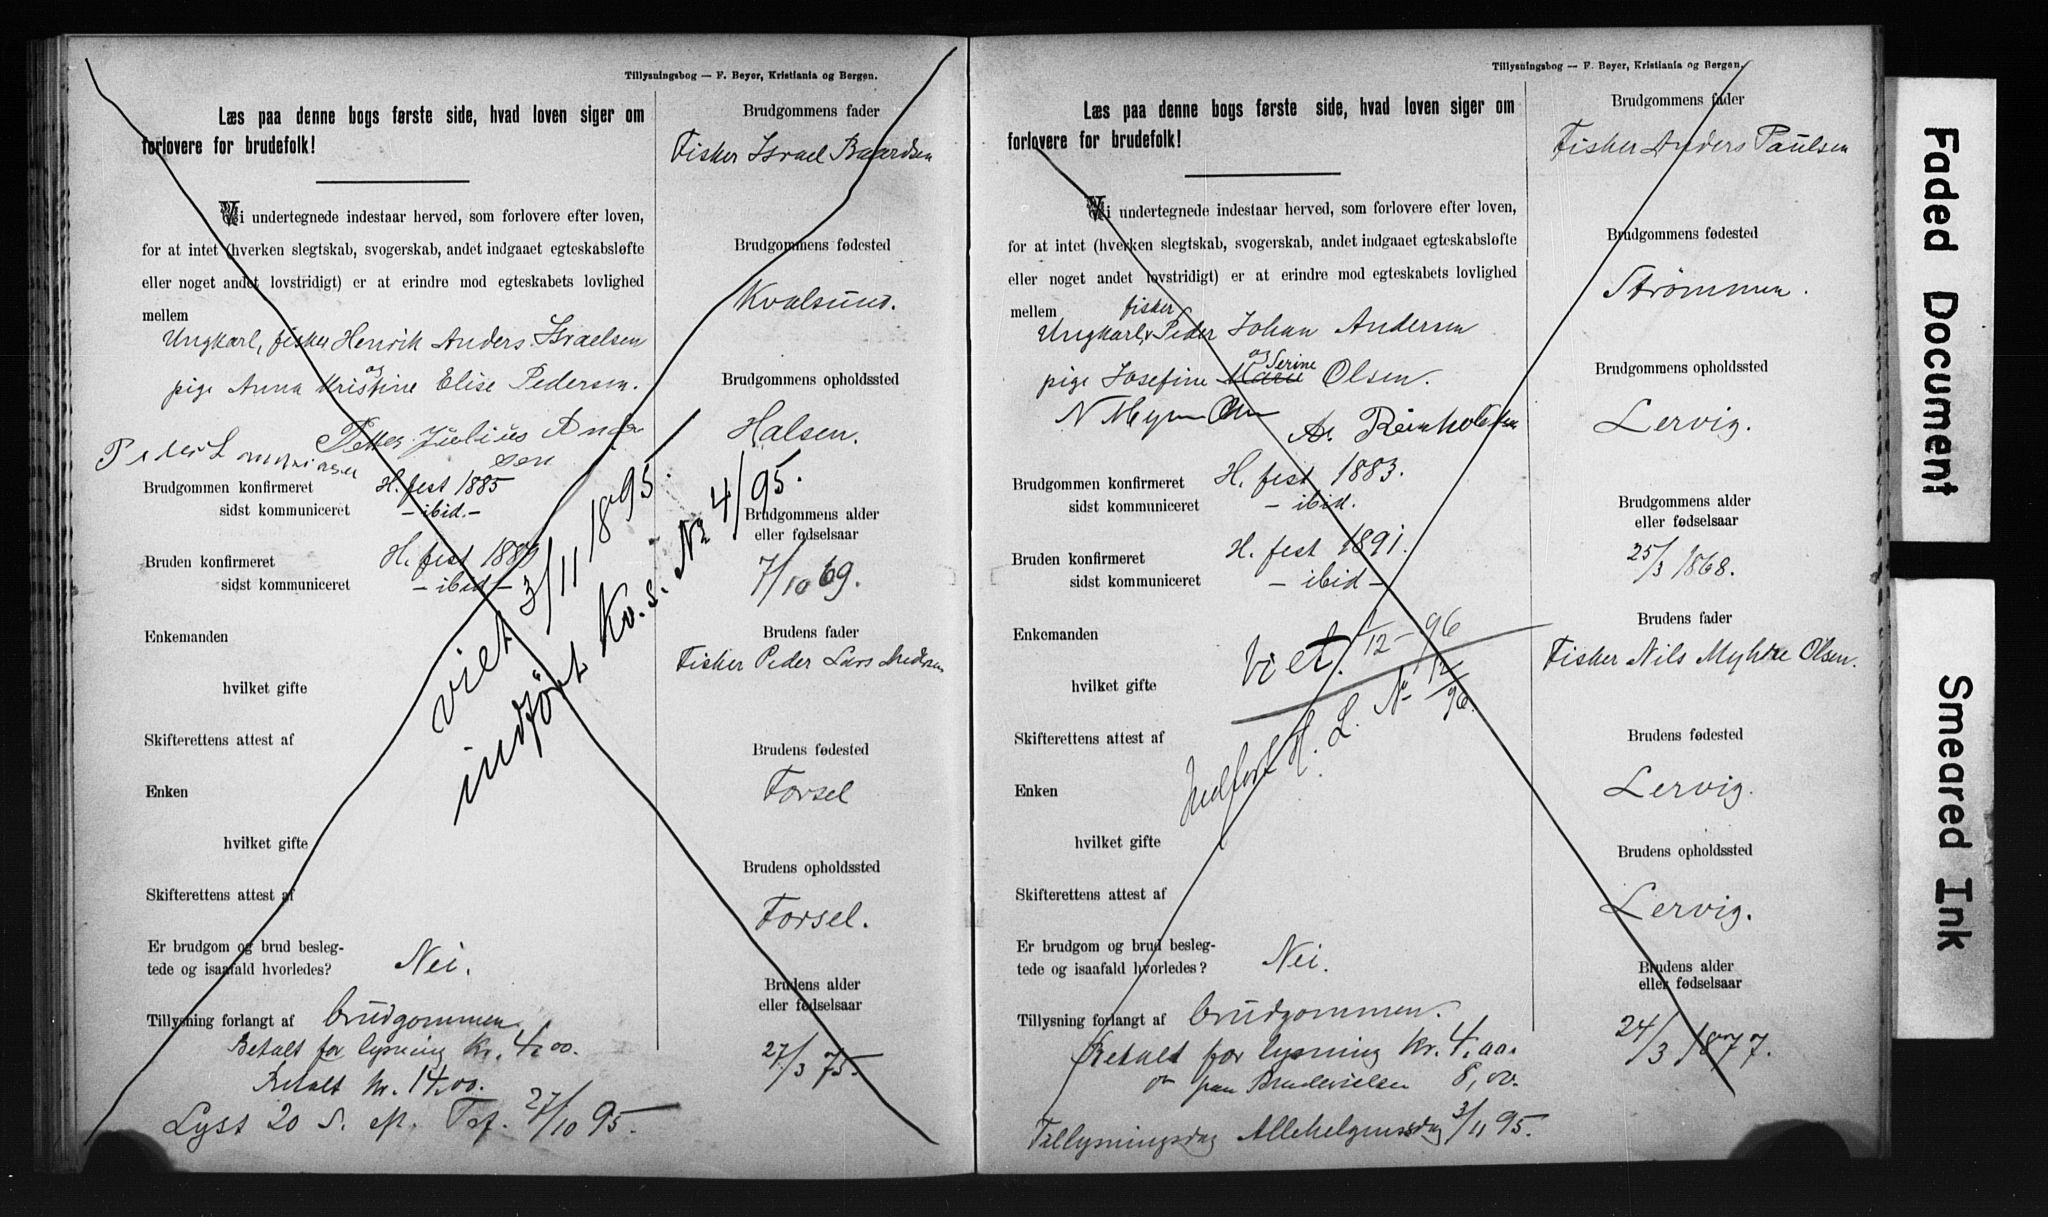 Tillysningsbog — F. Beyer, Kristiania og Bergen.
Læs paa denne bogs første side, hvad loven siger om
forlovere for brudefolk!
Vi undertegnede indestaar herved, som forlovere efter loven,
for at intet (hverken slegtskab, svogerskab, andet indgaaet egteskabsløfte
eller noget andet lovstridigt) er at erindre mod egteskabets lovlighed
mellem
Ungkarl, fisker Henrik Anders Israelsen
og
pige Anna Kristine Elise Pedersen.
Petter Julius Ander
sen
Peder L
Brudgommen konfirmeret H. fest 1885
sidst kommuniceret — ibid. —
Bruden konfirmeret H. fest 1889
sidst kommuniceret — ibid —
Enkemanden
hvilket gifte
Skifterettens attest af
Enken
hvilket gifte
Skifterettens attest af
Er brudgom og brud besleg-
tede og isaafald hvorledes? Nei.
Tillysning forlangt af brudgommen
Betalt for lysning kr. 4,00.
Betalt kr. 14,00.
Lyst 20 S. e. Tref. 27/10 95.
viet 3/11 1895.
indført Kv. s. No 4/95.
Brudgommens fader
Fisker Israel Baardsen
Brudgommens fødested
Kvalsund.
Brudgommens opholdssted
Halsen.
Brudgommens alder
eller fødselsaar
7/10 69.
Brudens fader
Fisker Peder Lars Andersen
Brudens fødested
Forsel
Brudens opholdssted
Forsel.
Brudens alder
eller fødselsaar
27/3 75.
Tillysningsbog — F. Beyer, Kristiania og Bergen.
Læs paa denne bogs første side, hvad loven siger om
forlovere for brudefolk!
Vi undertegnede indestaar herved, som forlovere efter loven,
for at intet (hverken slegtskab, svogerskab, andet indgaaet egteskabsløfte
eller noget andet lovstridigt) er at erindre mod egteskabets lovlighed
mellem
fisker
Ungkarl, Peder Johan Andersen
og Serine
pige Josefine Marie Olsen.
N Olsen
A. Reinholdtsen
Brudgommen konfirmeret H. fest 1883.
sidst kommuniceret — ibid.
Bruden konfirmeret H. fest 1891.
sidst kommuniceret — ibid —
Enkemanden
hvilket gifte
Viet. 1/12 – 96
Indført H. L. No 12/96.
Skifterettens attest af
Enken
hvilket gifte
Skifterettens attest af
Er brudgom og brud besleg-
tede og isaafald hvorledes? Nei.
Tillysning forlangt af brudgommen.
Betalt for lysning kr. 4,00.
paa Brudevielsen 8,00.
Tillysningsdag Allehelgensdag 3/11 95.
Brudgommens fader
Fisker Anders Paulsen
Brudgommens fødested
Strømmen.
Brudgommens opholdssted
Lervig.
Brudgommens alder
eller fødselsaar
25/3 1868.
Brudens fader
Fisker Nils Myhre Olsen.
Brudens fødested
Lervig.
Brudens opholdssted
Lervig.
Brudens alder
eller fødselsaar
24/3 1877.
Faded Document
Smeared Ink